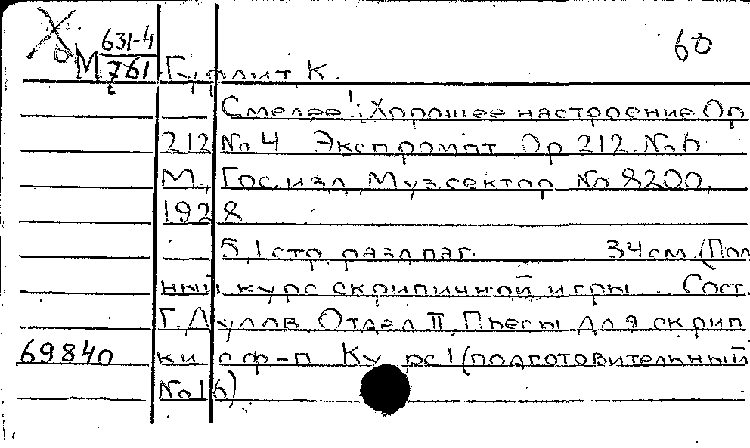 631-4
М 761 Гурлит К. 60
Смелее!; Хорошее настроение Op
212 No 4 Экспромпт Op 212. No 6
М., Гос. изд. Музсектор No 8200,
1928
5,1 стр. разд. паг. 34 см. (Пол
ный курс скрипичной игры . Сост.
Г. Дулов. Отдел II. Пьесы для скрип
69840 ки с ф-п Курс I (подготовительный
No 16)